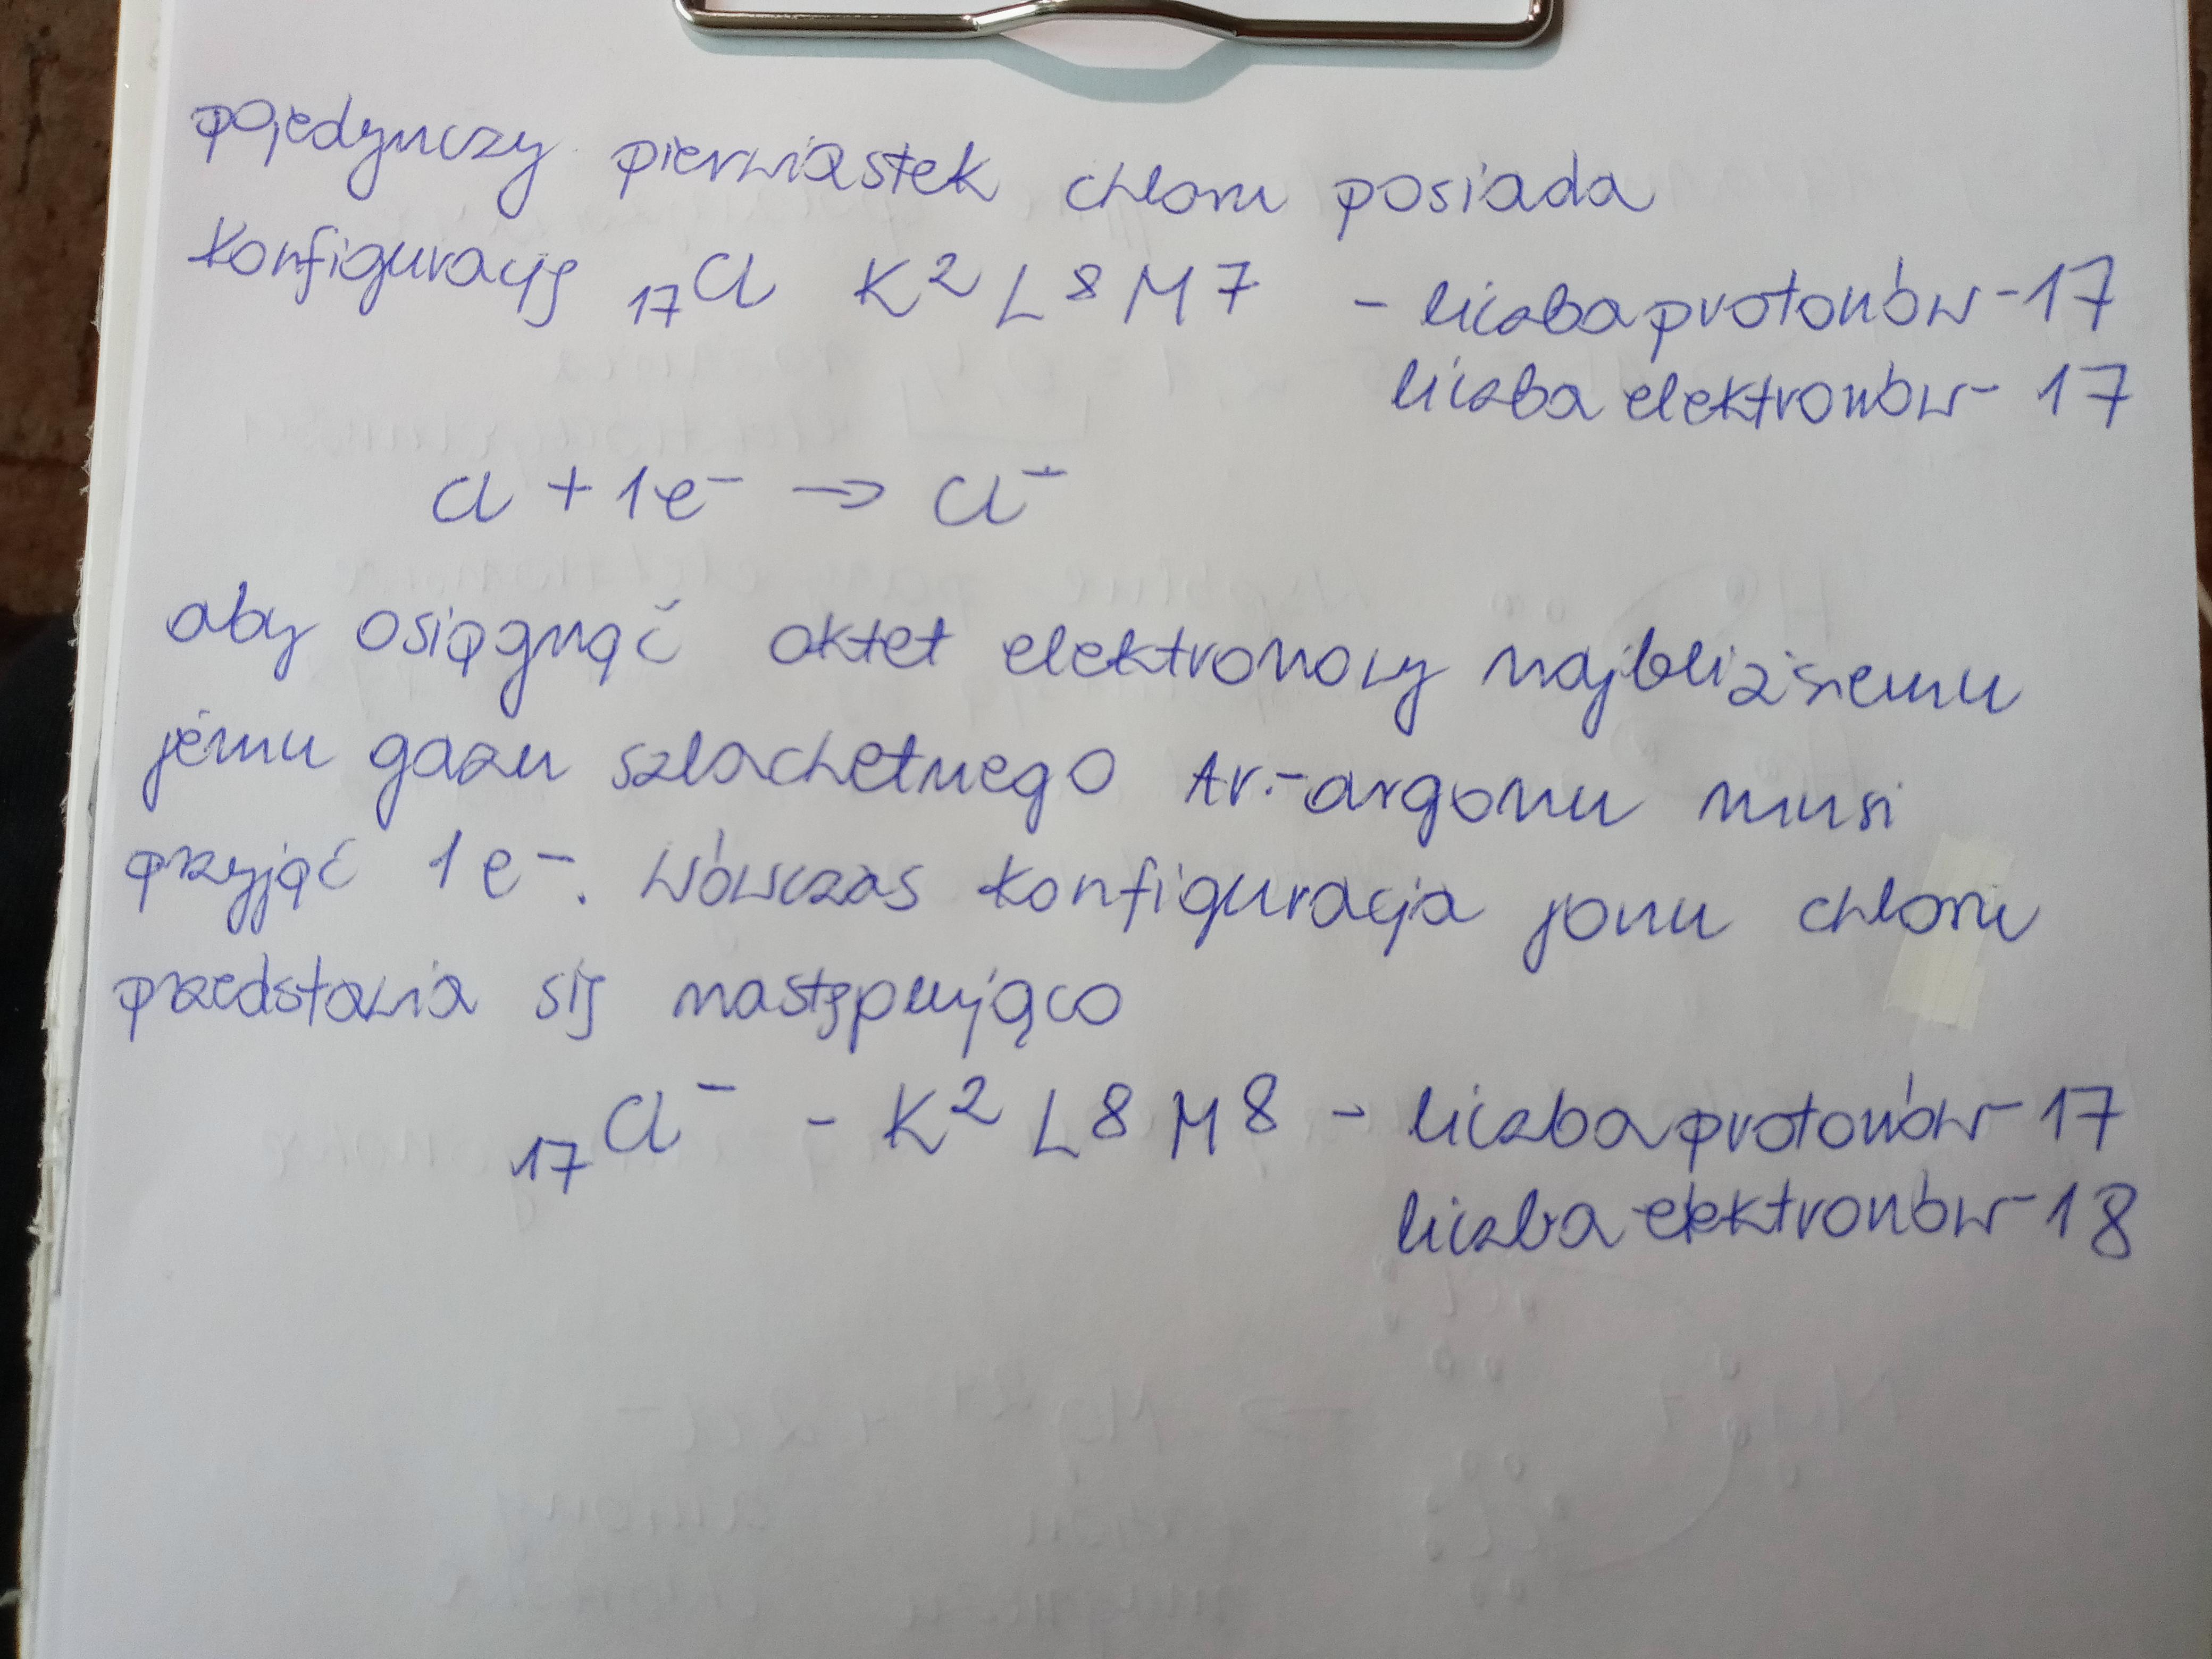 pojedynczy pierwiastek chloru posiada
konfigurację ₁₇Cl K² L⁸ M⁷ - liczba protonów - 17
liczba elektronów - 17
Cl + 1e⁻ → Cl⁻
aby osiągnąć oktet elektronowy najbliższemu
jemu gazu szlachetnego Ar.-argonu musi
przyjąć 1e⁻. Wówczas konfiguracja jonu chloru
przedstawia się następująco
₁₇Cl⁻ - K² L⁸ M⁸ - liczba protonów - 17
liczba elektronów - 18